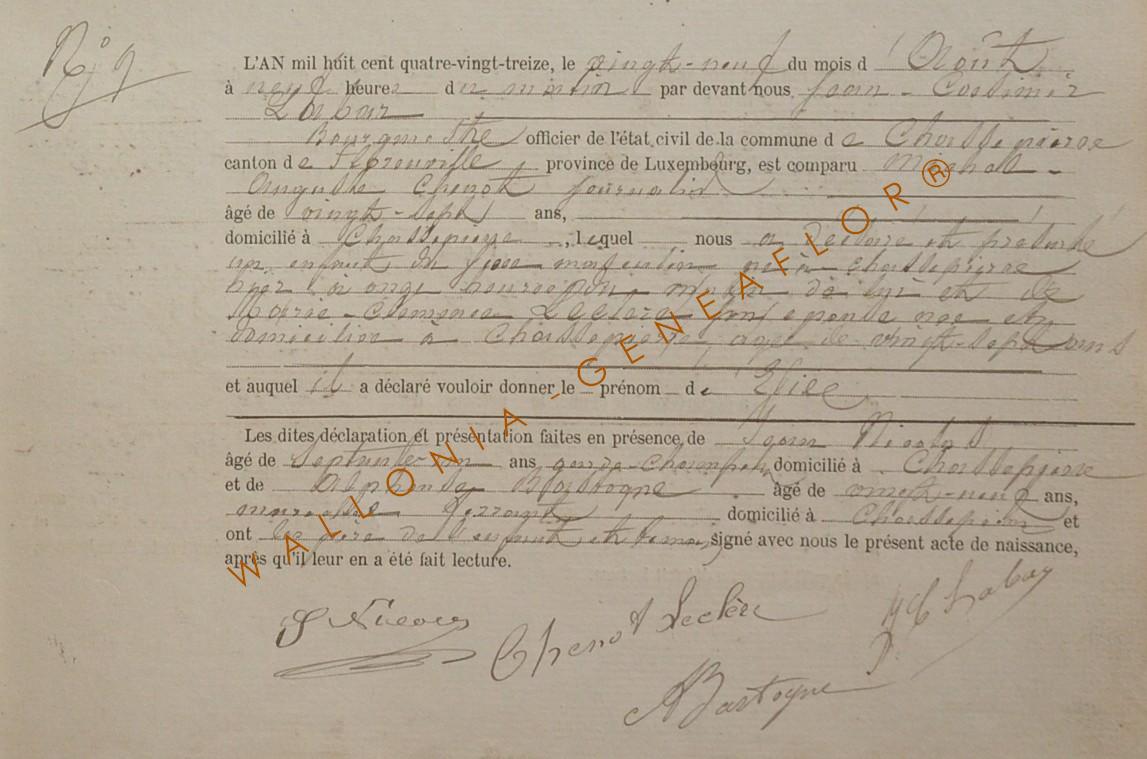 No 9
L'AN mil huit cent quatre-vingt-treize, le vingt-neuf du mois d Août
à neuf heures du matin par devant nous Jean - Casimir
Labour
Bourgmestre officier de l'état civil de la commune de Chassepierre
canton de Florenville, province de Luxembourg, est comparu
Auguste Chenot journalier
âgé de vingt-sept ans,
domicilié à Chassepierre, lequel nous a déclaré et présenté
un enfant du sexe masculin né à Chassepierre
hier à onze heures de lui et de
Marie - Clémence Leclère son épouse née et
domiciliée à Chassepierre agée de vingt-sept ans
et auquel il a déclaré vouloir donner le prénom de
Les dites déclaration et présentation faites en présence de Nicolas
âgé de ans garde-champêtre domicilié à Chassepierre
et de Alphonse Bastogne âgé de vingt-neuf ans,
domicilié à Chassepierre et
ont les père de l'enfant et témoins signé avec nous le présent acte de naissance,
après qu'il leur en a été fait lecture.
Chenot Leclère
A Bastogne
WALLONIA - GENEAFLOR®